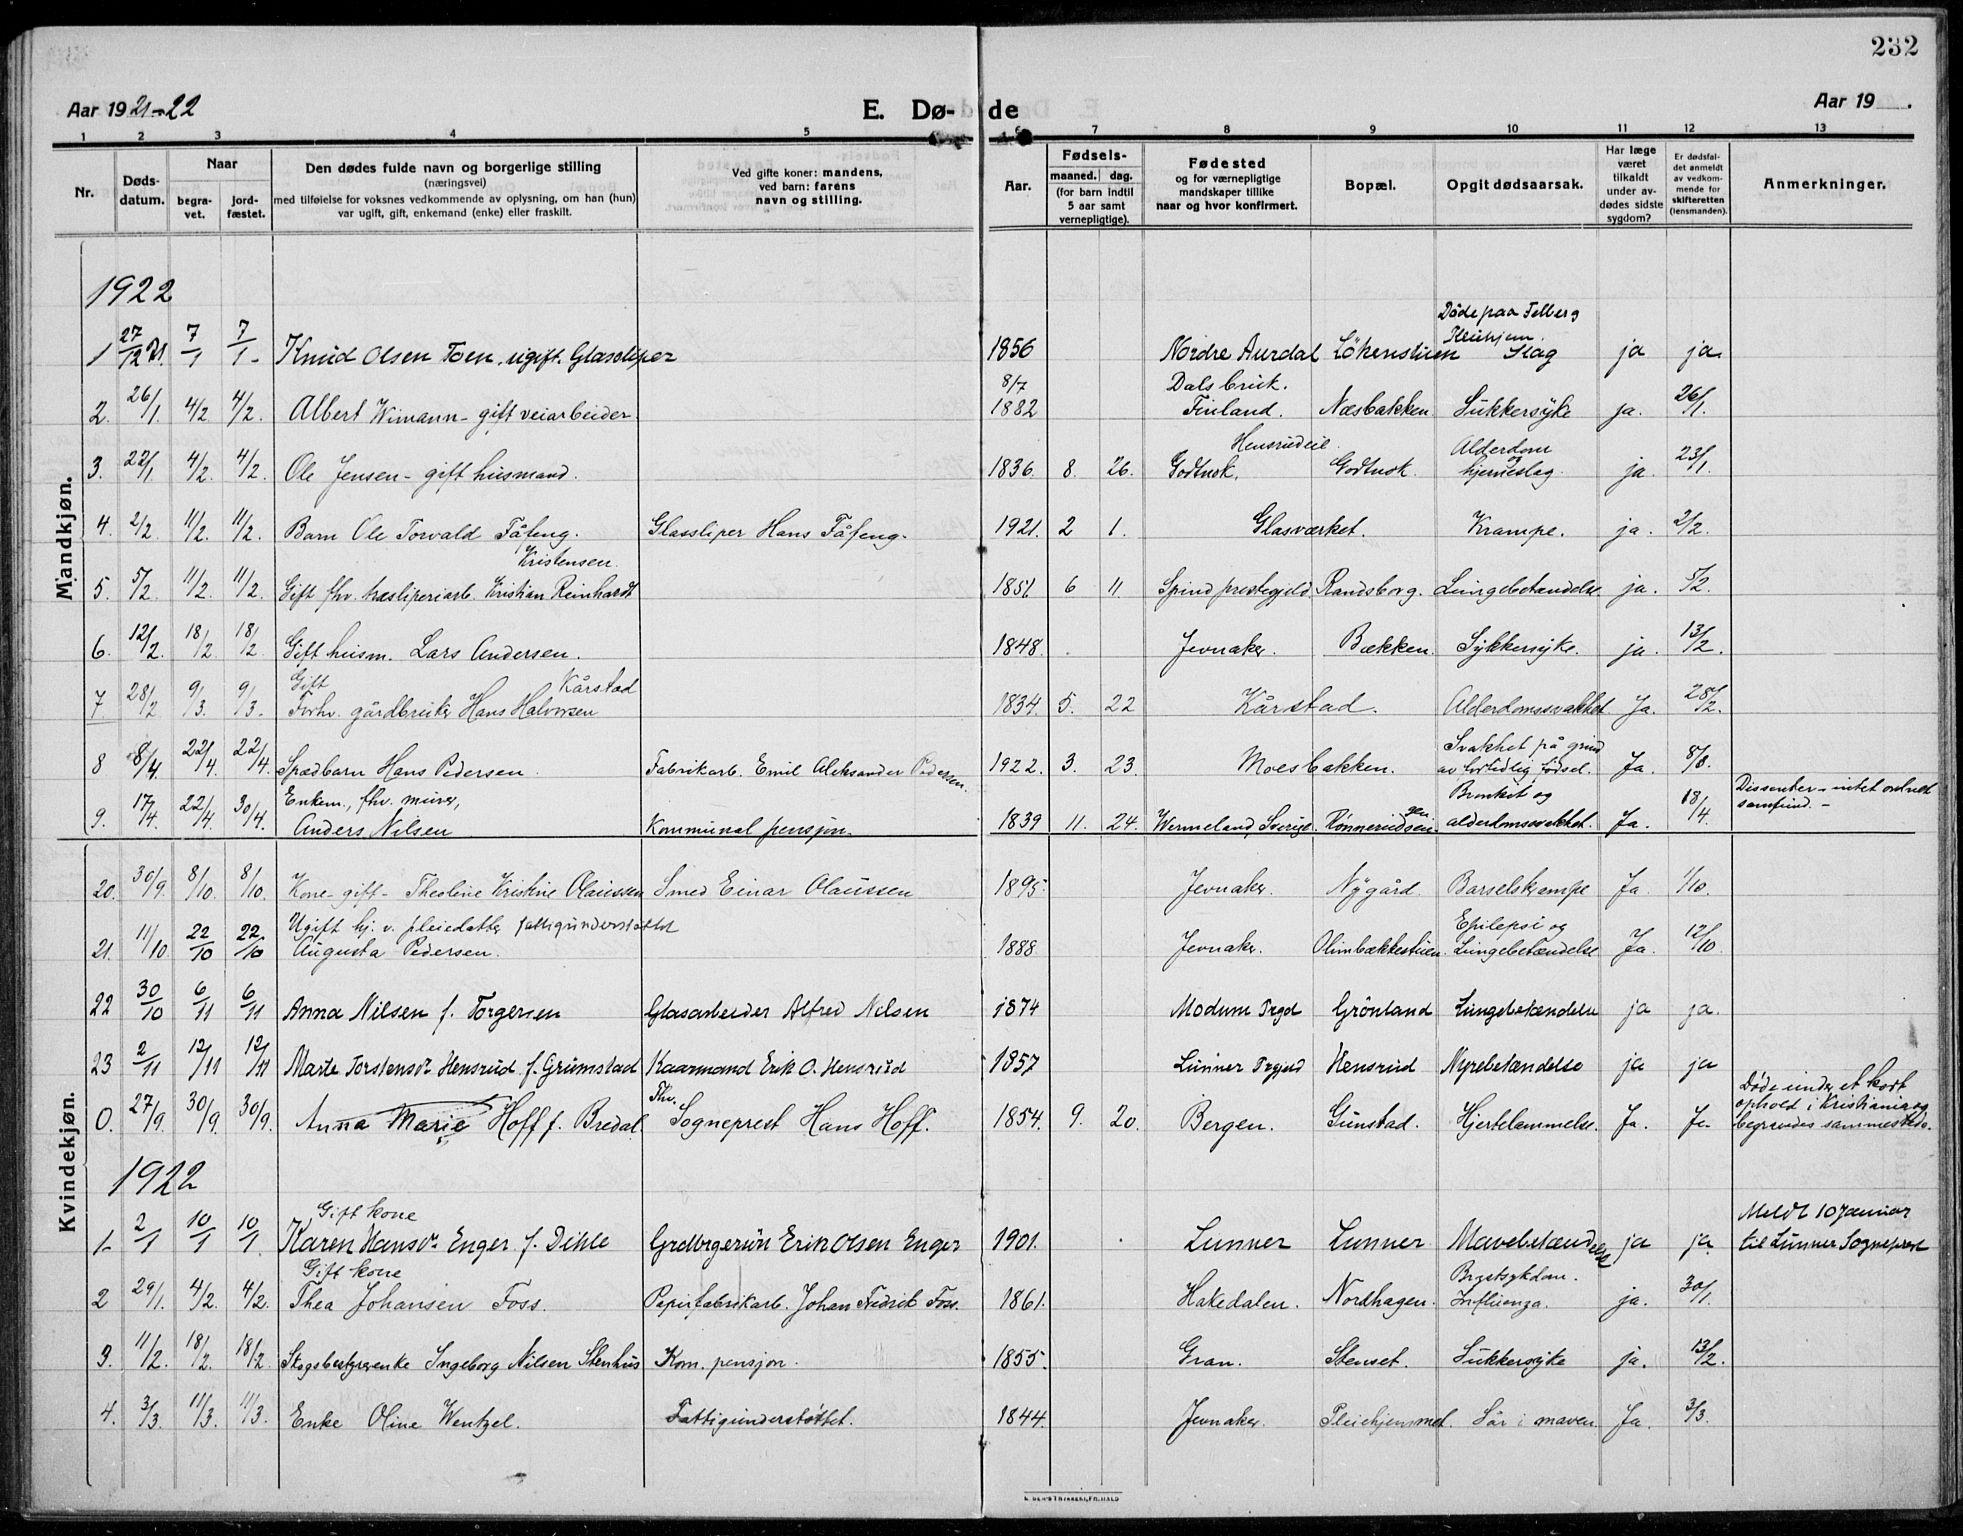 232
Aar 1921-22 E. Dø- de Aar 19 .
1 2 3 4 5 6 7 8 9 10 11 12 13
Nr. Døds-datum. Naar begra-vet. jord-fæstet. Den dødes fulde navn og borgerlige stilling (næringsvei) med tilføielse for voksnes vedkommende av oplysning, om han (hun) var ugift, gift, enkemand (enke) eller fraskilt. Ved gifte koner: mandens, ved barn: farens navn og stilling. Aar. Fødsels- maaned. dag. (for barn indtil 5 aar samt vernepligtige). Fødested og for værnepligtige mandskaper tillike naar og hvor konfirmert. Bopæl. Opgit dødsaarsak. Har læge været tilkaldt under av-dødes sidste sygdom? Er dødsfal-det anmeldt av vedkom-mende for skifteretten (lensmanden). Anmerkninger.
Mandkjøn.
1922
Døde paa Felberg Pleiehjem.
1 27/12 21. 7/1 7/1- Knud Olsen Toen, ugift. Glassliper 1856 Nordre Aurdal Løkenstuen Slag ja ja
8/7 Dalsbruk.
2. 26/1 4/2 4/2. Albert Wimann - gift veiarbeider 1882 Finland. Næsbakken Sukkersyke ja. 26/1.
Hensrudeie. Alderdom og
3. 22/1 4/2. 4/2. Ole Jensen - gift husmand. 1836. 8. 26. Godtnok. Godtnok. hjerneslag ja. 23/1.
4. 2/2. 11/2. 11/2. Barn Ole Torvald Fåfeng. Glassliper Hans Fåfeng. 1921. 2 1. Glasværket. Krampe. ja. 2/2.
Kristensen.
5. 5/2. 11/2. 11/2. Gift fhv. træsliperiarb. Kristian Reinhardt 1851 6 11 Spind prestegjeld Randsborg. Lungebetændelse ja. 5/2.
6. 12/2. 18/2 18/2 Gift husm. Lars Andersen. 1848. Jevnaker. Bækken. Sykkersyke. ja. 13/2.
Gift Kårstad
7 28/2 9/3. 9/3. Forhv. gårdbruker Hans Halvorsen 1834. 5. 22 Kårstad. Alderdomssvakhet Ja. 28/2.
Svakhet på grund
8 8/4. 22/4. 22/4. Spædbarn Hans Pedersen. Fabrikarb. Emil Aleksander Pedersen. 1922. 3. 23. Moesbakken. av fortidlig fødsel. Ja. 8/8.
Enkem., fhv. murer, Bronkit og Dissenter - intet ordnet samfund. -
9. 17/4. 22/4. 30/4. Anders Nilsen Kommunal pensjon. 1839 11. 24. Wermeland, Sverige. Rønnerudsen alderdomssvakhet. Ja. 18/4
Kvindekjøn.
20. 30/9. 8/10. 8/10. Kone - gift - Theoline Kristine Olaussen Smed Einar Olaussen 1895 Jevnaker. Nygård. Barselskrampe Ja. 1/10.
Ugift hj. v. pleiedatter fattigunderstøttet Epilepsi og
21. 11/10 22/10 22/10 Augusta Pedersen. 1888 Jevnaker. Olimbækkestuen. Lungebetændelse Ja. 12/10
22 30/10 6/11 6/11 Anna Nilsen f. Torgersen Glasarbeider Alfred Nilsen 1874 Modum Prgd Grønland Lungebetændelse ja ja.
23 2/11 12/11 12/11 Marte Torstensdr Hensrud f. Grumstad Kaarmand Erik O. Hensrud 1857 Lunner Prgjeld Hensrud Nyrebetændelse ja ja
Fhv. Døde under et kort ophold i Kristiania og begravdes sammesteds.
0. 27/9. 30/9 30/9. Anna Marie Hoff f. Bredal. Sogneprest Hans Hoff. 1854. 9. 20. Bergen. Gunstad. Hjertelammelse. Ja. Ja
1922
Gift kone Meldt 10 Januar
1- 2/1 10/1 10/1. Karen Hansdr Enger f. Dihle Grdbrgersøn Erik Olsen Enger 1901. Lunner Lunner Mavebetændelse ja ja til Lunner Sogneprest
Gift kone Brystsykdom.
2 29/1. 4/2. 4/2. Thea Johansen Foss. Papirfabrikarb. Johan Fredrik Foss. 1861. Hakedalen. Nordhagen. Influenza. ja. 30/1.
3. 11/2. 18/2. 18/2. Skogsbestyrerenke Ingeborg Nilsen Stenhus Kom. pensjon. 1855. Gran. Stenset. Sukkersyke ja. 13/2.
4. 3/3. 11/3. 11/3. Enke Oline Wentzel. Fattigunderstøttet. 1844. Jevnaker. Pleiehjemmet. Sår i maven Ja. 3/3.